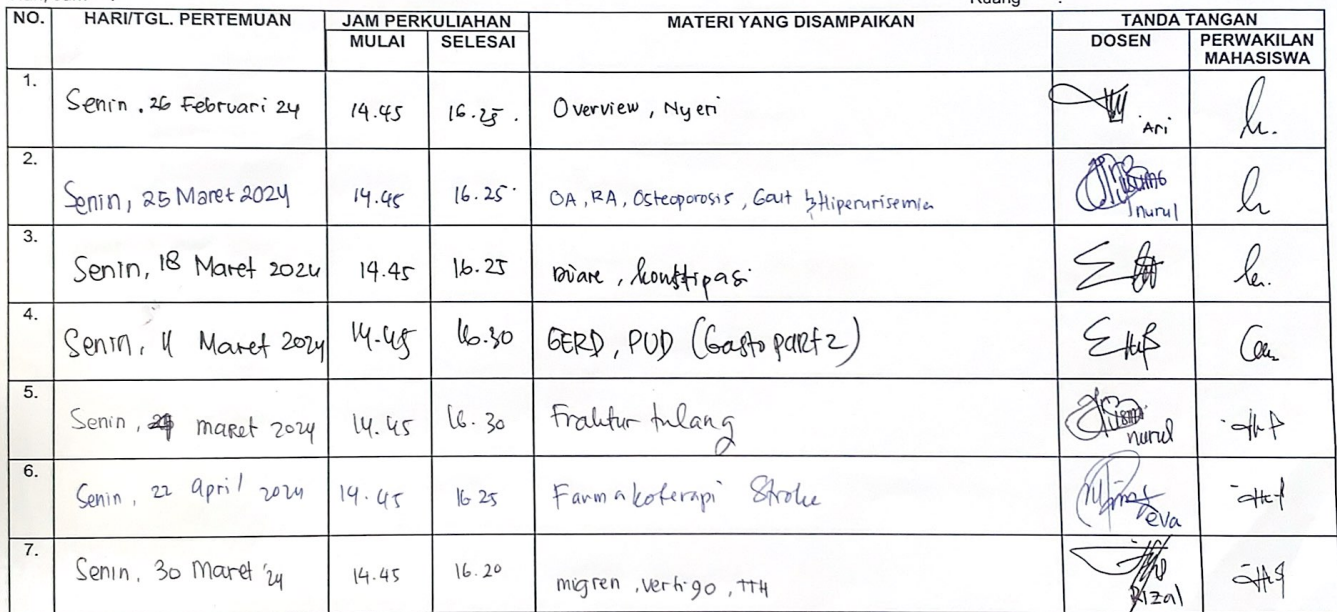 NO. HARI/TGL. PERTEMUAN JAM PERKULIAHAN MATERI YANG DISAMPAIKAN TANDA TANGAN
MULAI SELESAI DOSEN PERWAKILAN MAHASISWA
1. Senin, 26 Februari 24 14.45 16.25. Overview, Nyeri Ari
2. Senin, 25 Maret 2024 14.45 16.25 OA, RA, Osteoporosis, Gout & Hiperurisemia nurul
3. Senin, 18 Maret 2024 14.45 16.25 Diare, konstipasi
4. Senin, 4 Maret 2024 14.45 16.30 GERD, PUD (Gasto part 2)
5. Senin, maret 2024 14.45 16.30 Fraktur tulang nurul
6. Senin, 22 april 2024 14.45 16 25 Farmakoterapi Stroke eva
7. Senin, 30 Maret '24 14.45 16.20 migren, vertigo, TTH Rizal